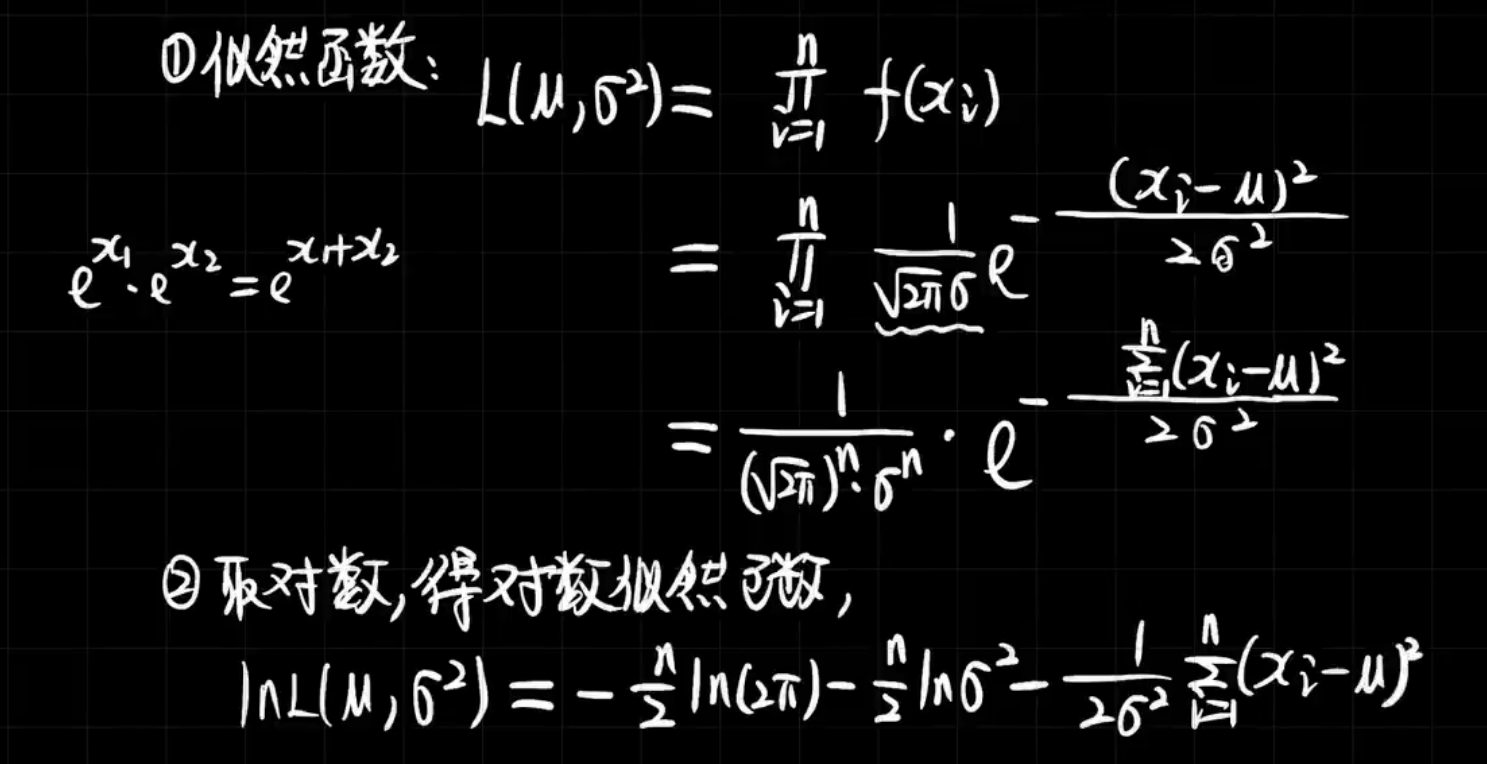 ①似然函数: L(μ,σ²)= ∏_{i=1}^{n} f(x_i)
= ∏_{i=1}^{n} \frac{1}{\sqrt{2π}σ} e^{-\frac{(x_i-μ)^2}{2σ^2}}
e^{x_1}·e^{x_2}=e^{x_1+x_2}
= \frac{1}{(\sqrt{2π})^n·σ^n} · e^{-\frac{∑_{i=1}^{n}(x_i-μ)^2}{2σ^2}}
②取对数,得对数似然函数,
lnL(μ,σ²)=-\frac{n}{2}ln(2π)-\frac{n}{2}lnσ²-\frac{1}{2σ²}∑_{i=1}^{n}(x_i-μ)²